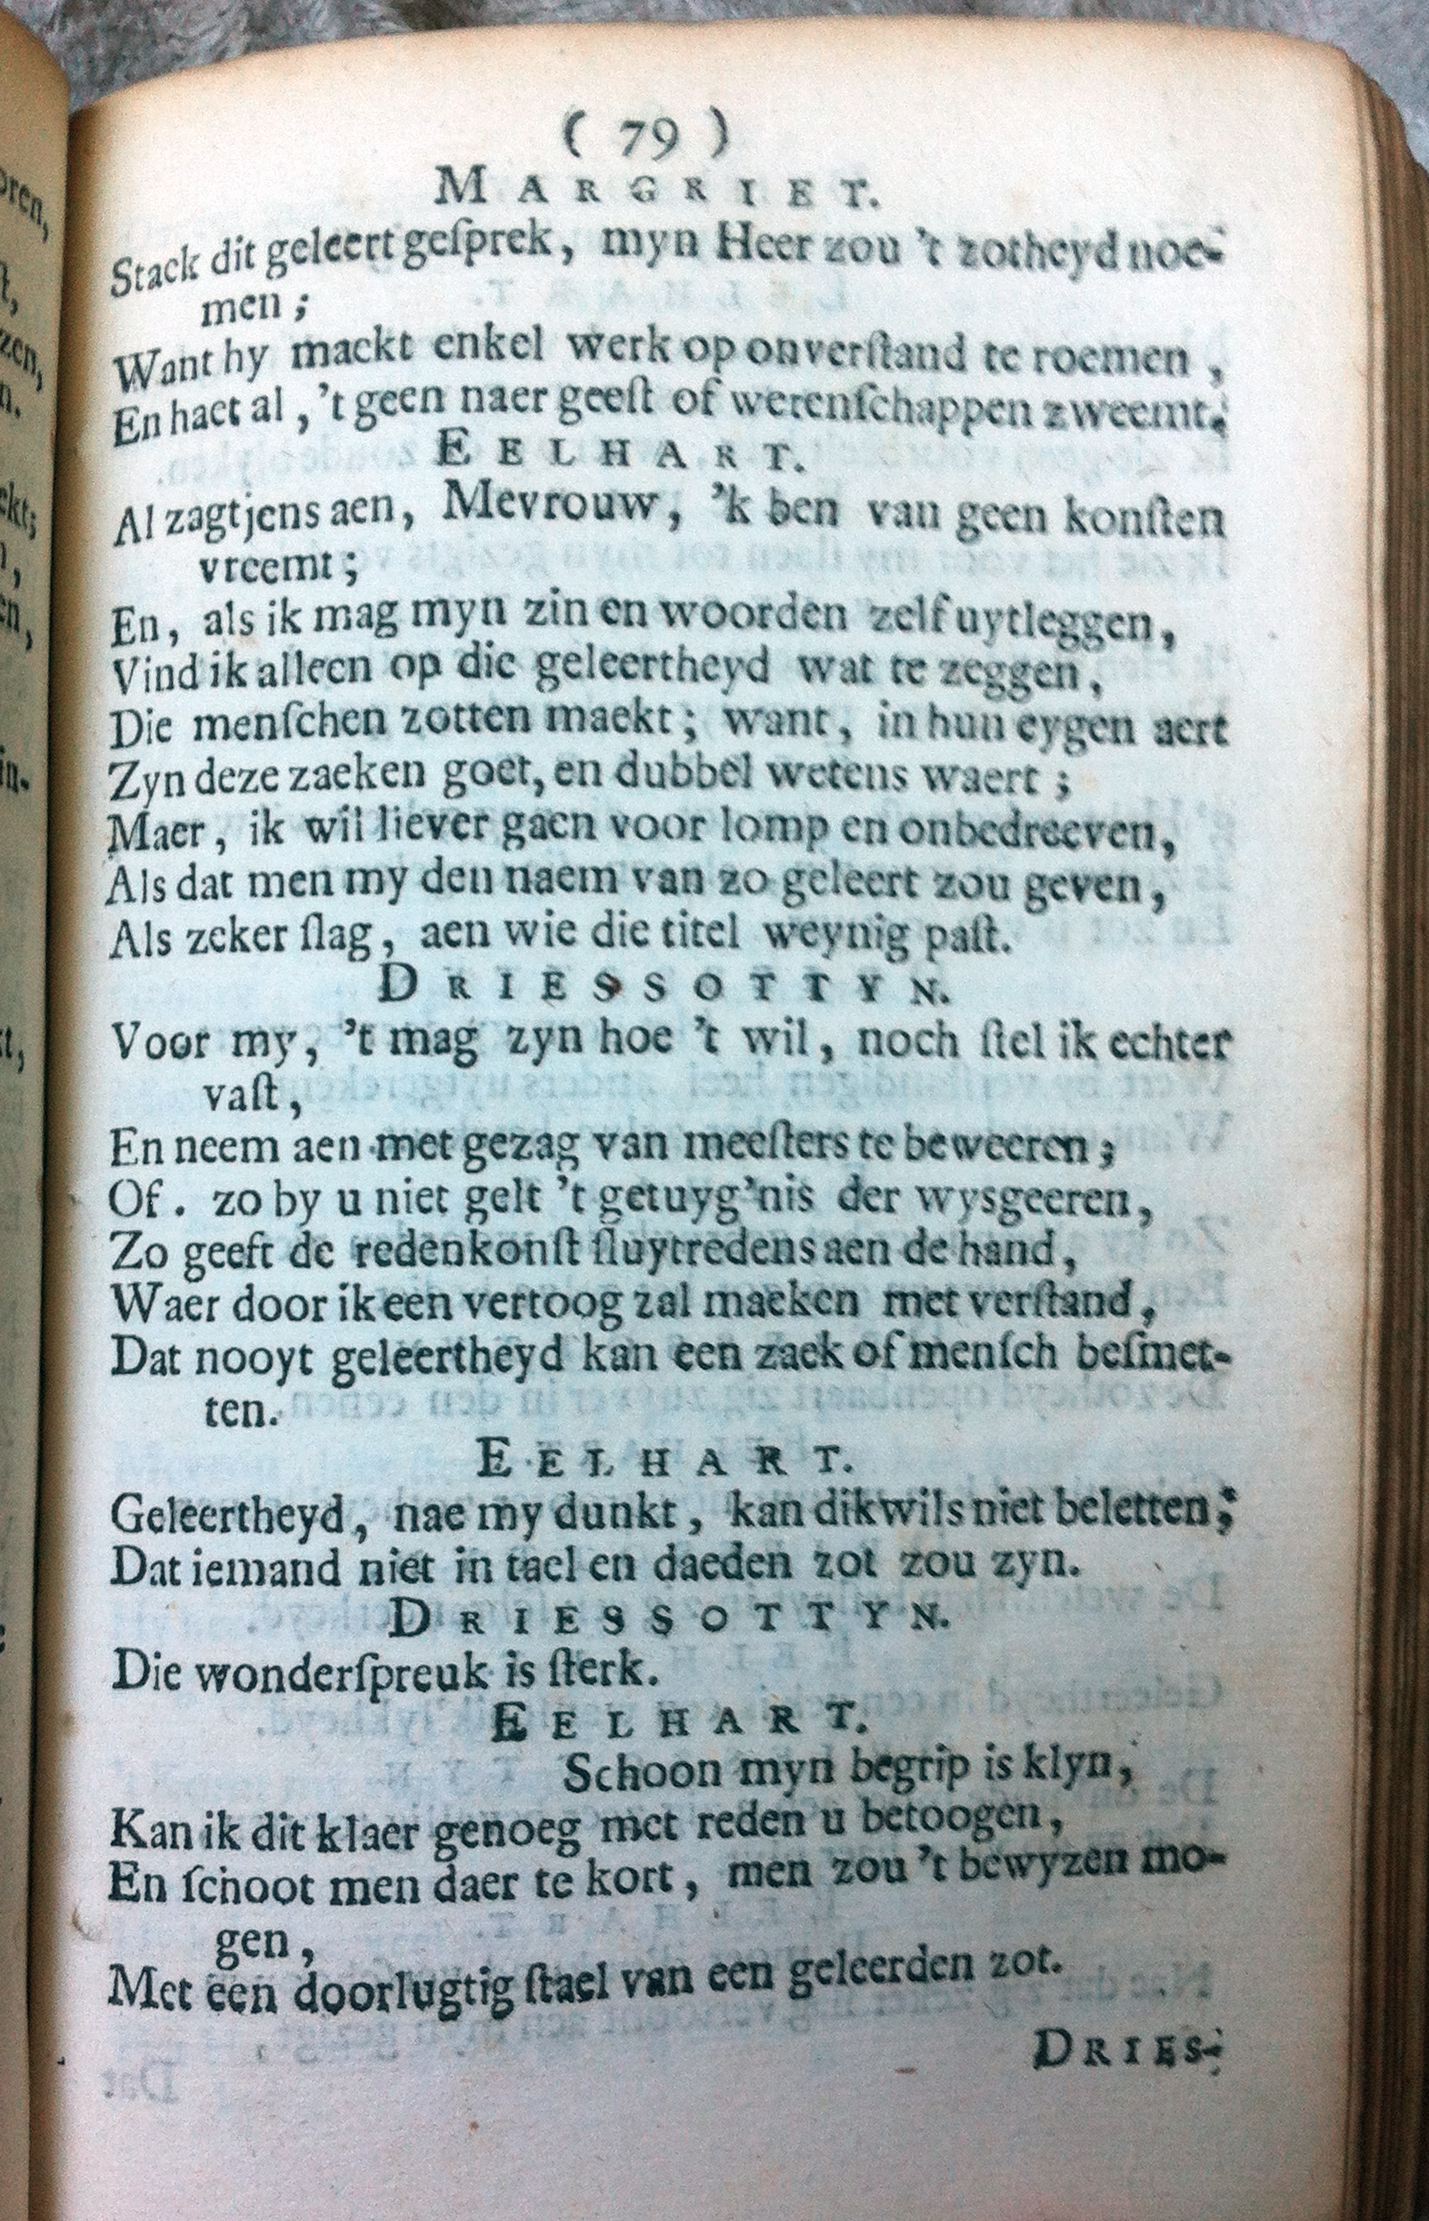 ( 79 )
MARGRIET.
Staek dit geleert geſprek, myn Heer zou 't zotheyd noe-
men;
Want hy maekt enkel werk op onverſtand te roemen,
En haet al, 't geen naer geeſt of wetenſchappen zweemt.
EELHART.
Al zagtjens aen, Mevrouw, 'k ben van geen konſten
vreemt;
En, als ik mag myn zin en woorden zelf uytleggen,
Vind ik alleen op die geleertheyd wat te zeggen,
Die menſchen zotten maekt; want, in hun eygen aert
Zyn deze zaeken goet, en dubbel wetens waert;
Maer, ik wil liever gaen voor lomp en onbedreeven,
Als dat men my den naem van zo geleert zou geven,
Als zeker ſlag, aen wie die titel weynig paſt.
DRIESSOTTYN.
Voor my, 't mag zyn hoe 't wil, noch ſtel ik echter
vaſt,
En neem aen met gezag van meeſters te beweeren;
Of. zo by u niet gelt 't getuyg'nis der wysgeeren,
Zo geeft de redenkonſt ſluytredens aen de hand,
Waer door ik een vertoog zal maeken met verſtand,
Dat nooyt geleertheyd kan een zaek of menſch beſmet-
ten.
EELHART.
Geleertheyd, nae my dunkt, kan dikwils niet beletten;
Dat iemand niet in tael en daeden zot zou zyn.
DRIESSOTTYN.
Die wonderſpreuk is ſterk.
EELHART.
Schoon myn begrip is klyn,
Kan ik dit klaer genoeg met reden u betoogen,
En ſchoot men daer te kort, men zou 't bewyzen mo-
gen,
Met een doorlugtig ſtael van een geleerden zot.
DRIES-